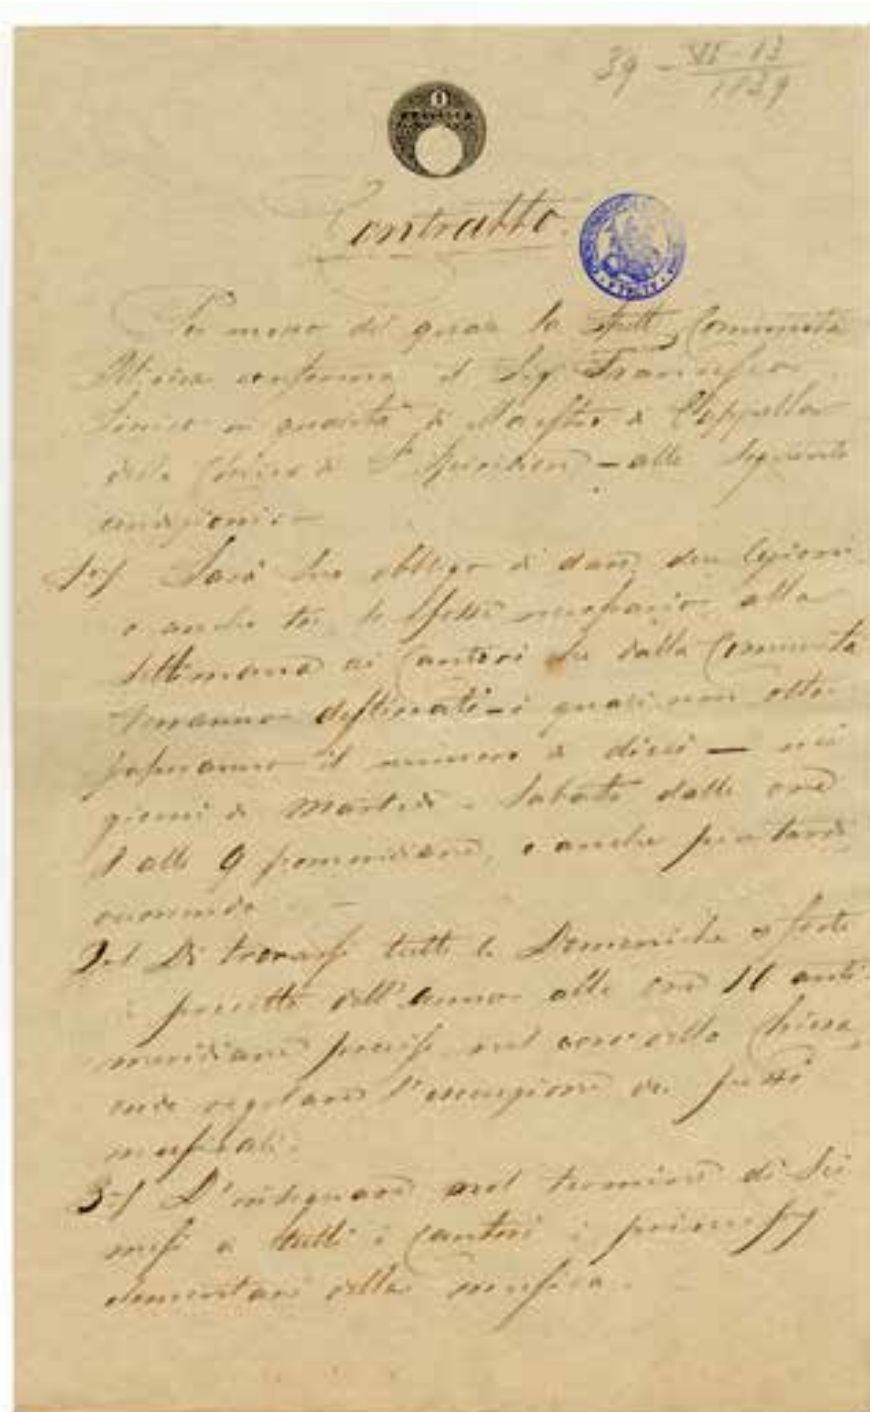 39 - VI-13
1839
Contratto.
Per mezzo del quale la Spett. Comunità
Illirica conferma il Sig. Francesco
Sinico in qualità di Maestro di Cappella
della Chiesa di S. Spiridione – alle seguenti
condizioni –
1°/ Sarà suo obbligo di dare due lezioni
o anche tre, se fosse necessario, alla
settimana ai Cantori che dalla Comunità
verranno destinati – i quali non oltre
passeranno il numero di dieci – nei
giorni di Martedì e Sabato dalle ore
alle 9 pomeridiane, e anche più tardi
occorrendo
2°/ Di trovarsi tutte le Domeniche e feste
di precetto dell'anno alle ore anti-
meridiane precise nel coro della Chiesa,
onde regolare l'esecuzione dei pezzi
musicali.
3°/ D'insegnare nel termine di sei
mesi a tutti i Cantori i principj
elementari della musica.